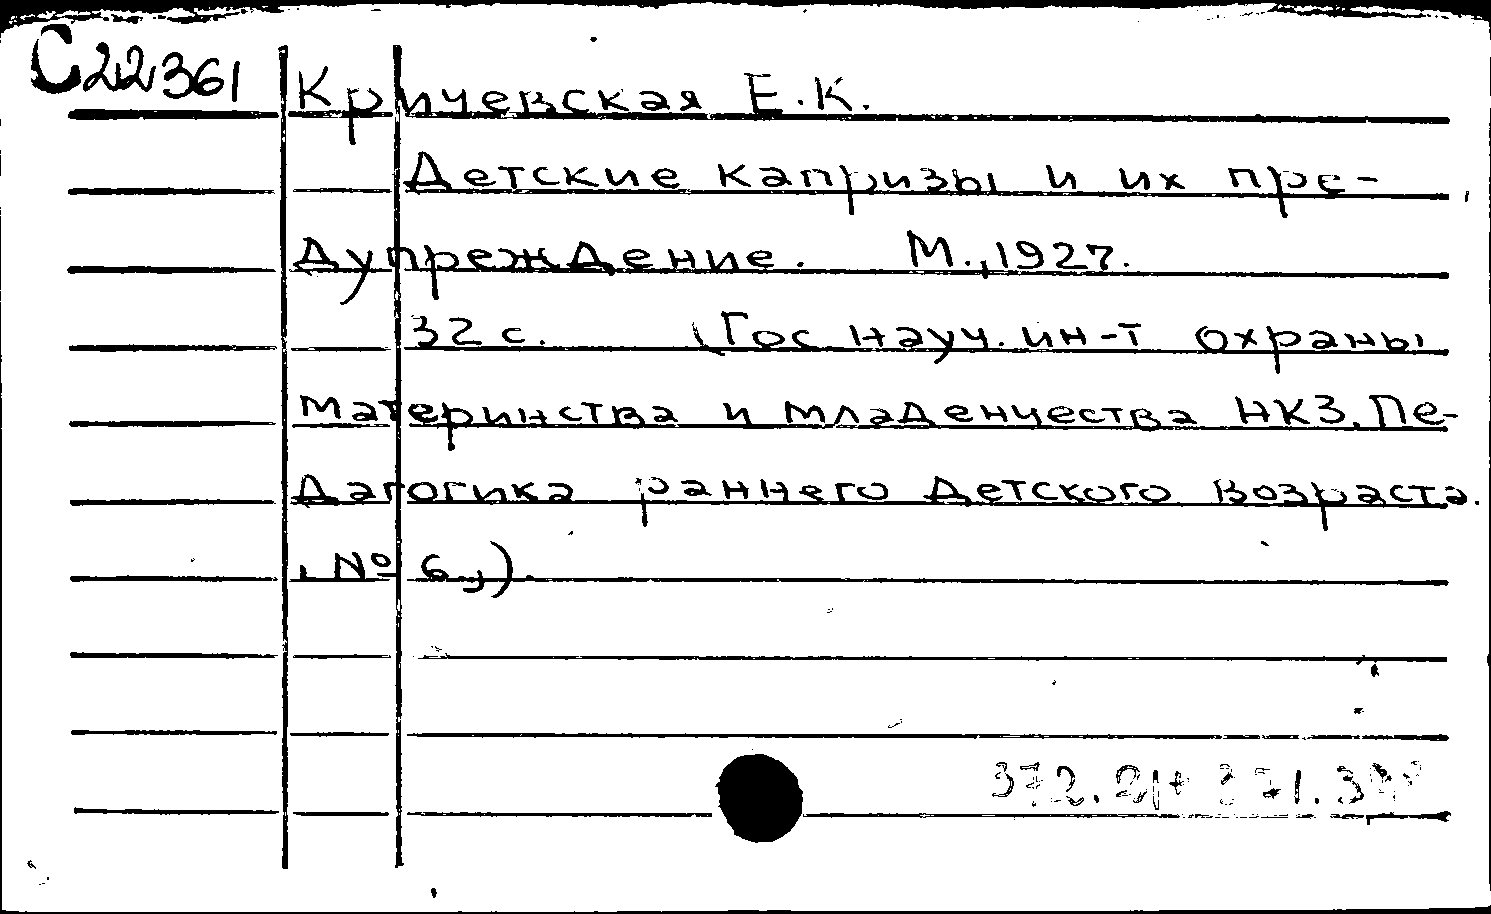 С22361
Кричевская Е.К.
Детские капризы и их пре-
дупреждение. М., 1927.
32 с. (Гос. науч. ин-т охраны
материнства и младенчества НКЗ. Пе-
дагогика раннего детского возраста.
, № 6,).
372.21+